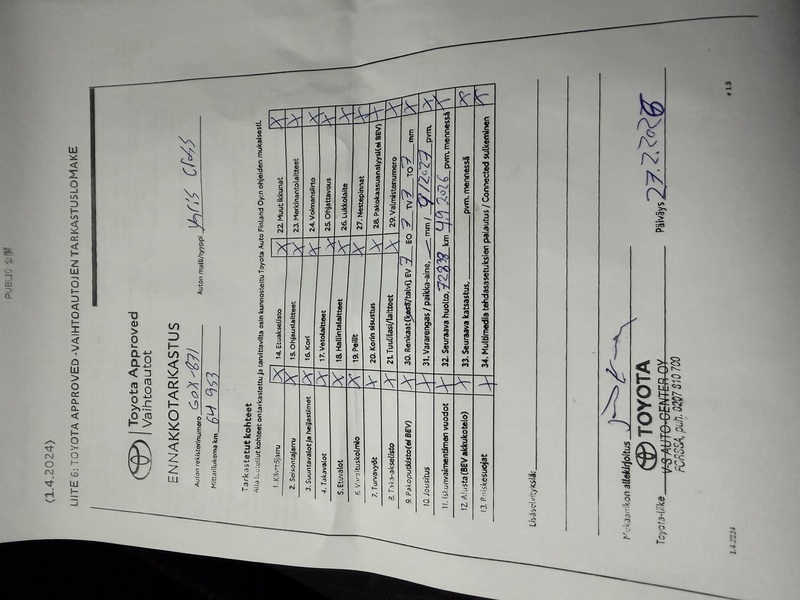 PUBLIC 公開
(1.4.2024)
LIITE 6: TOYOTA APPROVED -VAIHTOAUTOJEN TARKASTUSLOMAKE
Toyota Approved
Vaihtoautot
ENNAKKOTARKASTUS
Auton rekisterinumero GOX-871 Auton malli/tyyppi Yaris Cross
Mittarilukema km 64 953
Tarkastetut kohteet
Alla luetellut kohteet on tarkastettu ja tarvittavilta osin kunnostettu Toyota Auto Finland Oy:n ohjeiden mukaisesti.
1. Käsijarru X 14. Etuakselisto X 22. Muut ikkunat X
2. Seisontajarru X 15. Ohjauslaitteet X 23. Merkinantolaitteet X
3. Suuntavalot ja heijastimet X 16. Kori X 24. Voimansiirto X
4. Takavalot X 17. Vetolaitteet X 25. Ohjattavuus X
5. Etuvalot X 18. Hallintalaitteet X 26. Lukkolaite X
6. Varoituskolmio X 19. Peilit X 27. Nestepinnat X
7. Turvavyöt X 20. Korin sisustus X 28. Pakokaasuanalyysi (ei BEV) X
8. Taka-akselisto X 21. Tuulilasi/laitteet X 29. Valmistenumero X
9. Pakoputkisto (ei BEV) X 30. Renkaat (kesä/talvi) EV 7 EO 7 TV 7 TO 7 mm X
10. Jousitus X 31. Vararengas / paikka-aine, — mm / 9/2027 pvm. X
11. Iskunvaimentimen vuodot X 32. Seuraava huolto, 72838 km 4.9.2026 pvm. mennessä X
12. Alusta (BEV akkukotelo) X 33. Seuraava katsastus, pvm. mennessä X
13. Roiskesuojat X 34. Multimedia tehdasasetuksien palautus / Connected sulkeminen X
Lisäselvityksiä:
Mekaanikon allekirjoitus
TOYOTA
Toyota-liike V-S AUTO-CENTER OY Päiväys 27.2.2026
FORSSA, puh. 0207 810 700
1.4.2024 v 1.3